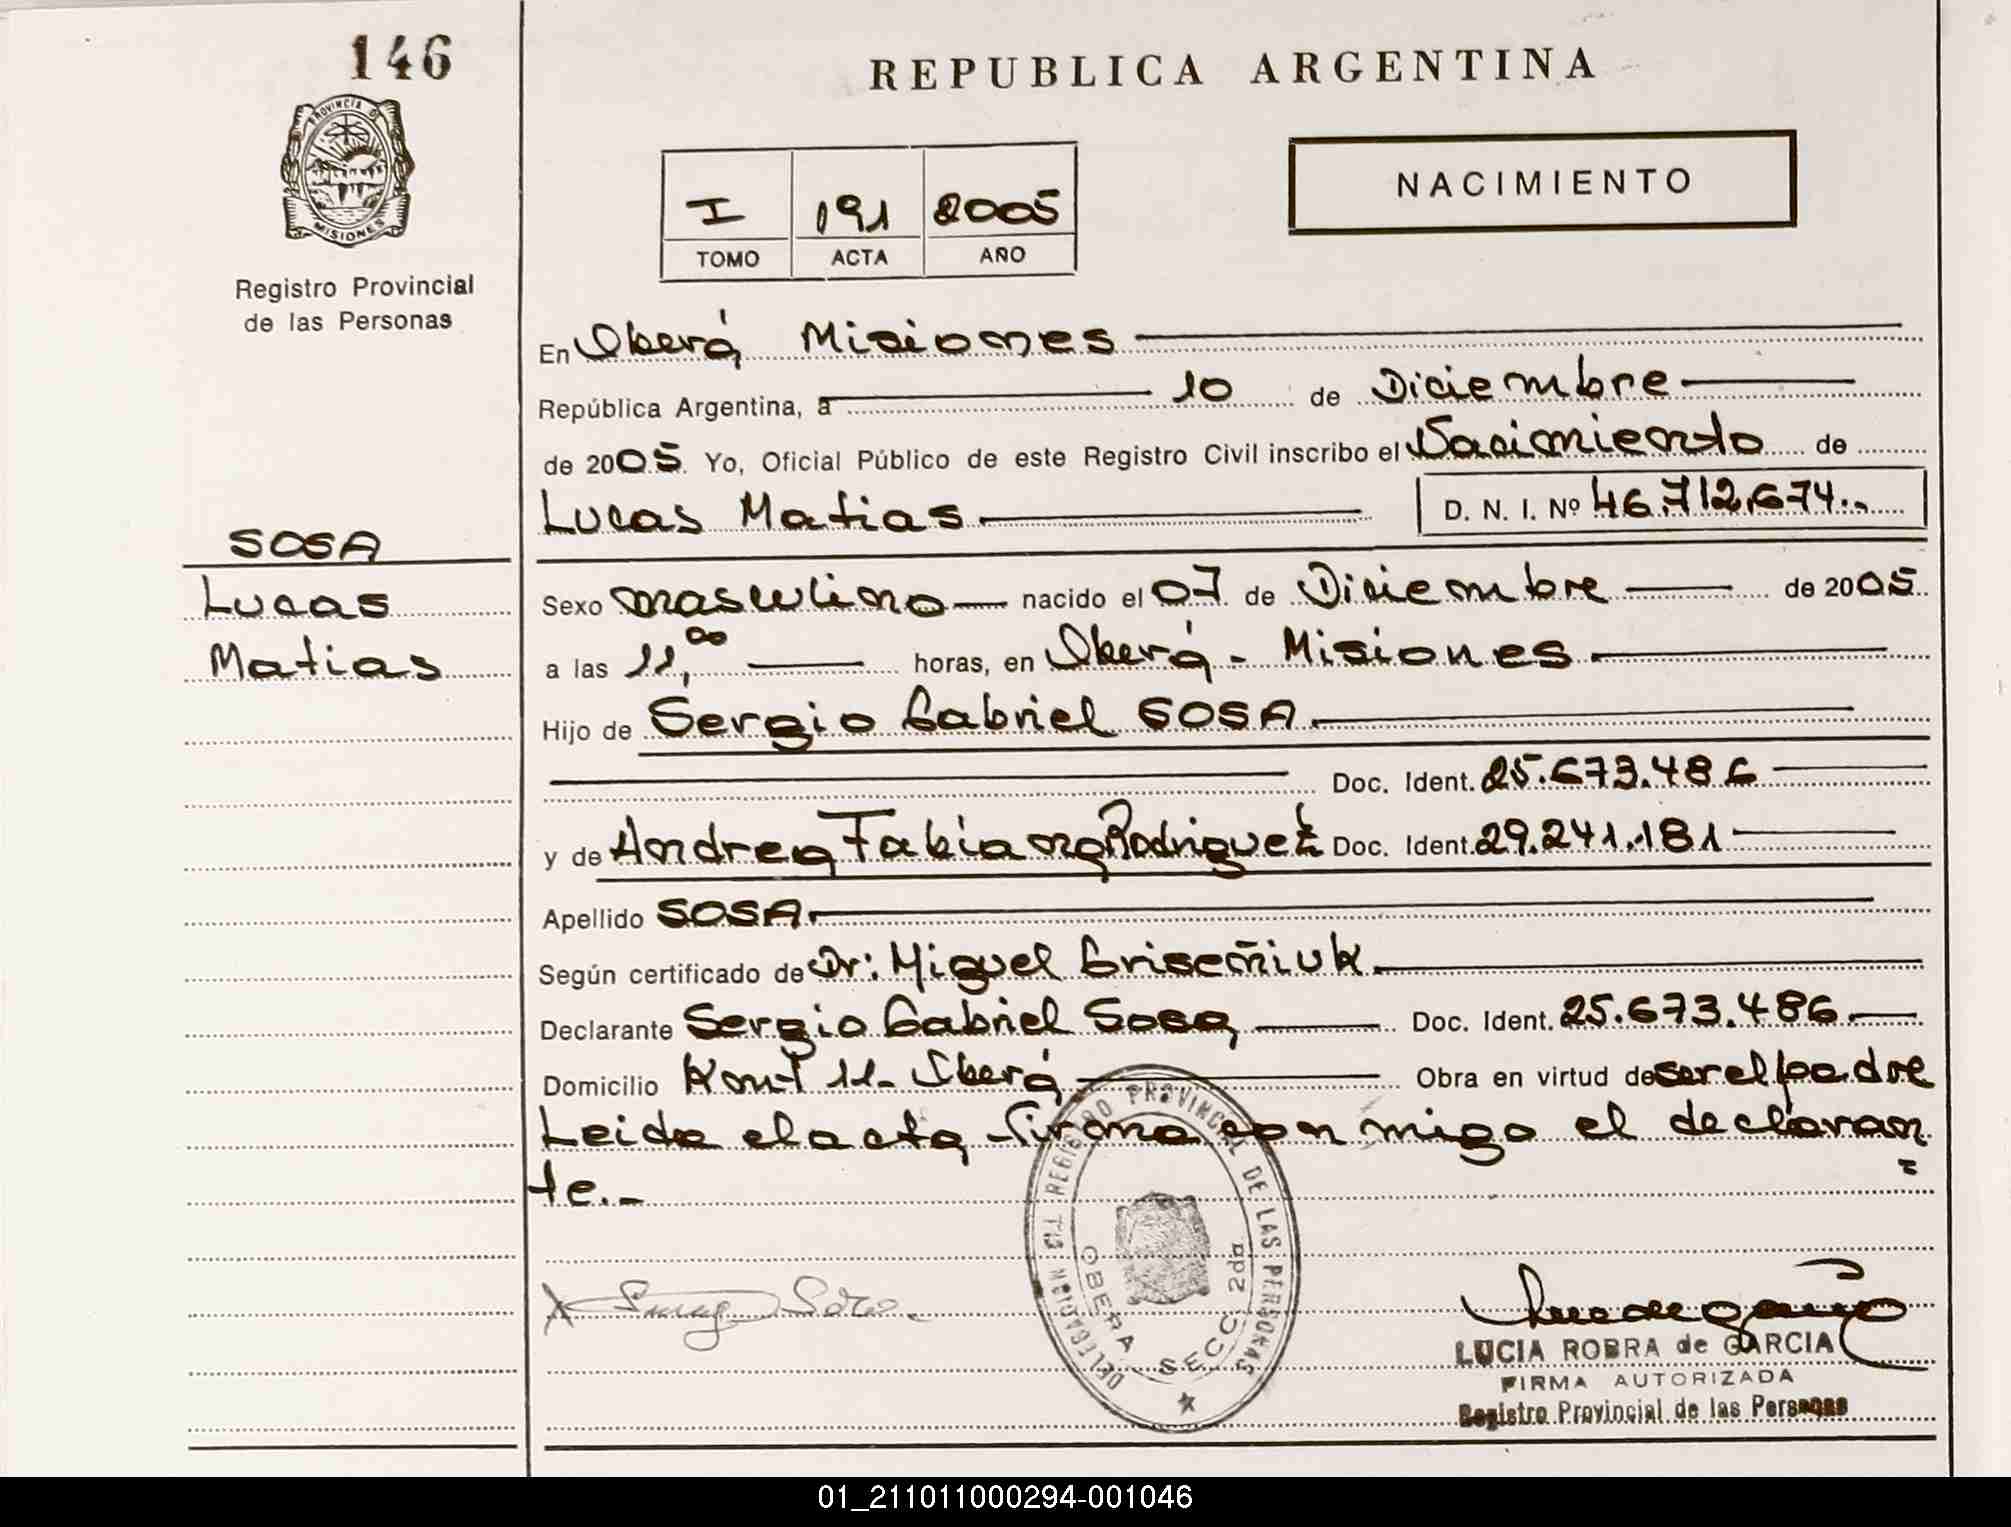 146
REPUBLICA ARGENTINA
PROVINCIA DE
MISIONES
I 191 2005
TOMO ACTA AÑO
NACIMIENTO
Registro Provincial
de las Personas
En Oberá Misiones
República Argentina, a 10 de Diciembre
de 2005 Yo, Oficial Público de este Registro Civil inscribo el Nacimiento de
Lucas Matias D. N. I. Nº 46.712.674.-
SOSA
Lucas
Matias
Sexo masculino nacido el 07 de Diciembre de 2005
a las 11,00 horas, en Oberá - Misiones
Hijo de Sergio Gabriel SOSA
Doc. Ident. 25.673.486
y de Andrea Fabiana Rodriguez Doc. Ident. 29.241.181
Apellido SOSA
Según certificado de Dr: Miguel
Declarante Sergio Gabriel Sosa Doc. Ident. 25.673.486
Domicilio 11- Oberá Obra en virtud de ser el padre
Leida el acta firma conmigo el declaran
te.-
DELEGACIÓN REGISTRO PROVINCIAL DE LAS PERSONAS
OBERA SECC. 2da
LUCIA ROBRA de GARCIA
FIRMA AUTORIZADA
Registro Provincial de las Personas
01_211011000294-001046